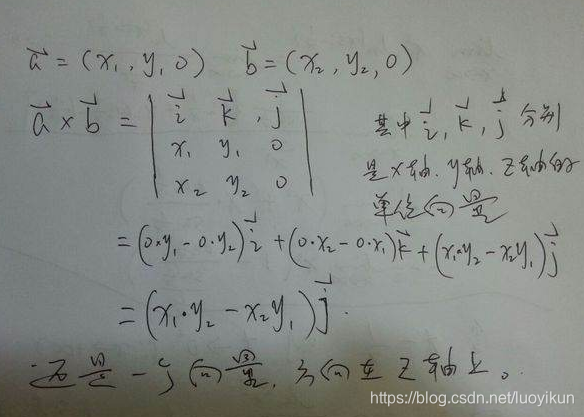 a⃗ = (x₁, y₁, 0) b⃗ = (x₂, y₂, 0)
a⃗ × b⃗ = | i⃗ k⃗ , j⃗ | 其中 i⃗, k⃗, j⃗ 分别
x₁ y₁ 0 是x轴、y轴、z轴的
x₂ y₂ 0 单位向量
= (0·y₁ - 0·y₂) i⃗ + (0·x₂ - 0·x₁) k⃗ + (x₁·y₂ - x₂y₁) j⃗
= (x₁·y₂ - x₂y₁) j⃗ .
还是一个向量,方向在z轴上。
https://blog.csdn.net/luoyikun